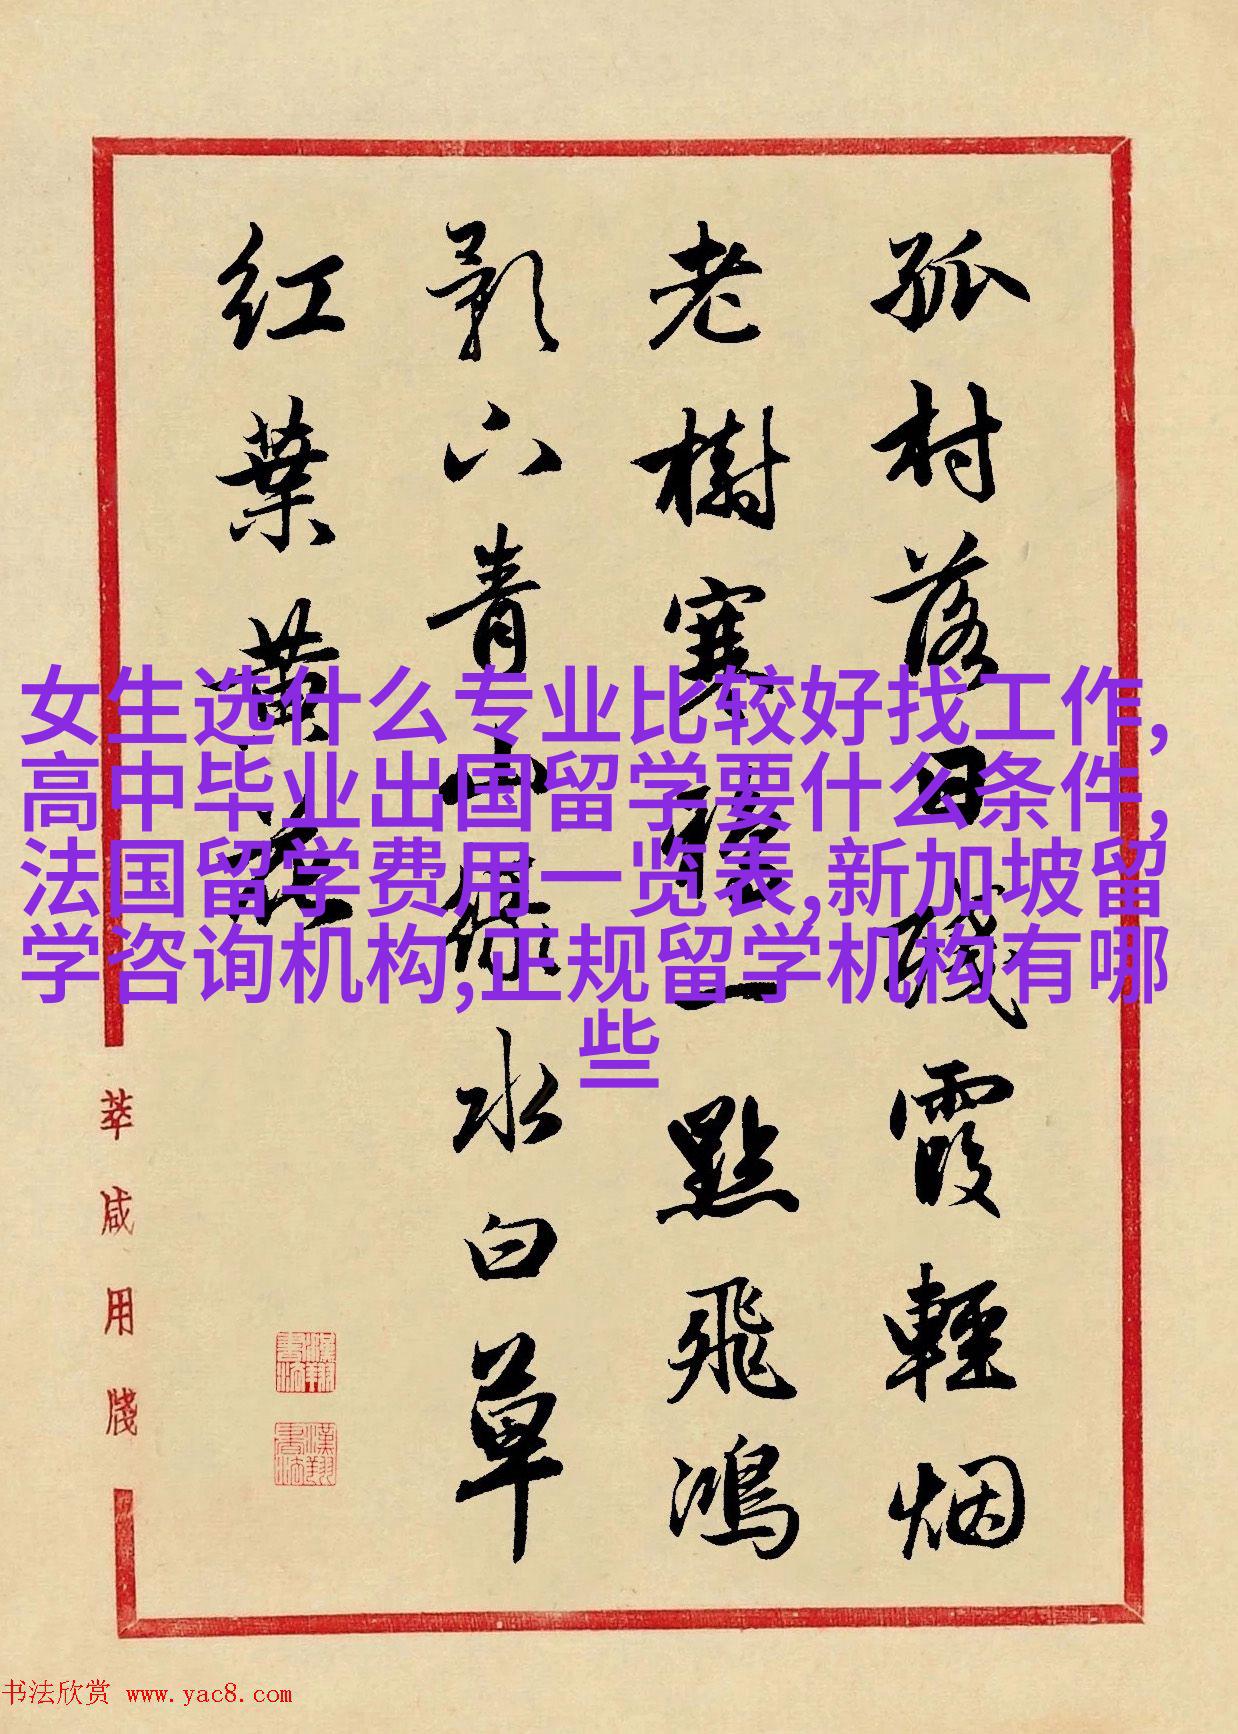 孤村落日残霞輕烟
老樹寒鴉一點飛鴻
影下青山緑水白草
红葉黄花
女生选什么专业比较好找工作,
高中毕业出国留学要什么条件,
法国留学费用一览表,新加坡留
学咨询机构,正规留学机构有哪
些
萃咸用牋
漢翔書法
漢翔書法
书法欣赏 www.yac8.com